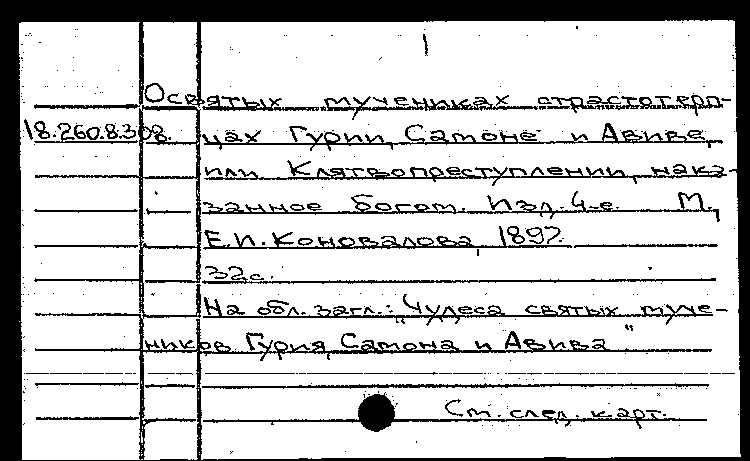 1
О святых мучениках страстотерп-
18.260.8.308. цах Гурии, Самоне и Авиве,
или Клятвопреступлении, нака-
занное богом. Изд. 4-е. М.,
Е.И. Коновалова, 1897.
32с.
На обл. загл.: "Чудеса святых муче-
ников Гурия, Самона и Авива"
См. след. карт.